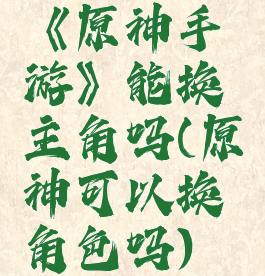 《原神手
游》能换
主角吗(原
神可以换
角色吗)